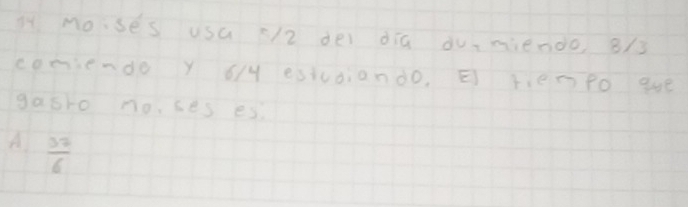 Moisés usa 5/2 del día durmiendo, 8/3
comiendo y 6/4 estudiando. El tiempo que
gasto moises es:
A. 37/6